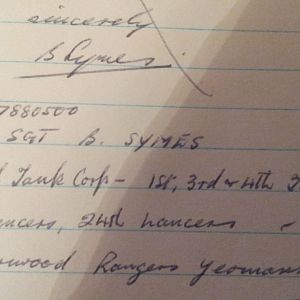 sincerely
B Symes.
7880500
SGT B. SYMES
Tank Corp - 1st, 3rd & 4th
24th Lancers -
Rangers Yeoman